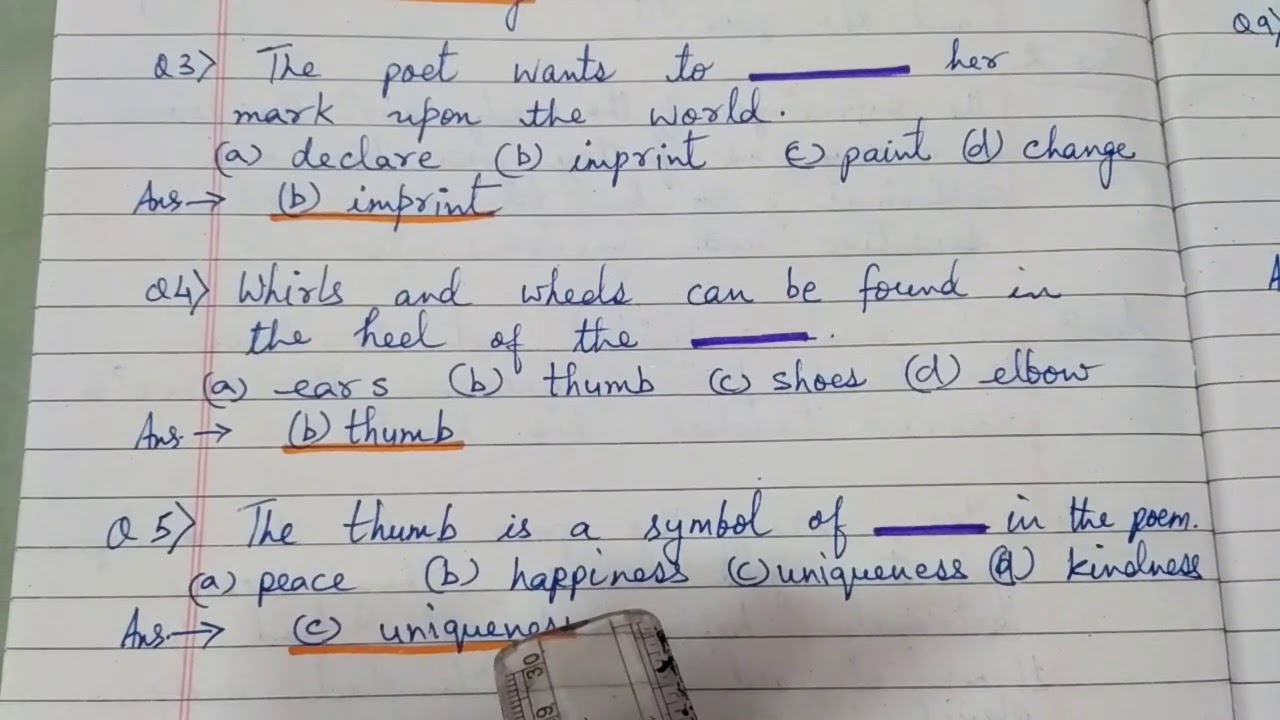 Q3) The poet wants to ______ her
mark upon the world.
(a) declare (b) imprint (c) paint (d) change
Ans → (b) imprint
Q4) Whirls and wheels can be found in
the heel of the ______.
(a) ears (b) thumb (c) shoes (d) elbow
Ans. → (b) thumb
Q5) The thumb is a symbol of ______ in the poem.
(a) peace (b) happiness (c) uniqueness (d) kindness
Ans. → (c) uniqueness
Q9)
30